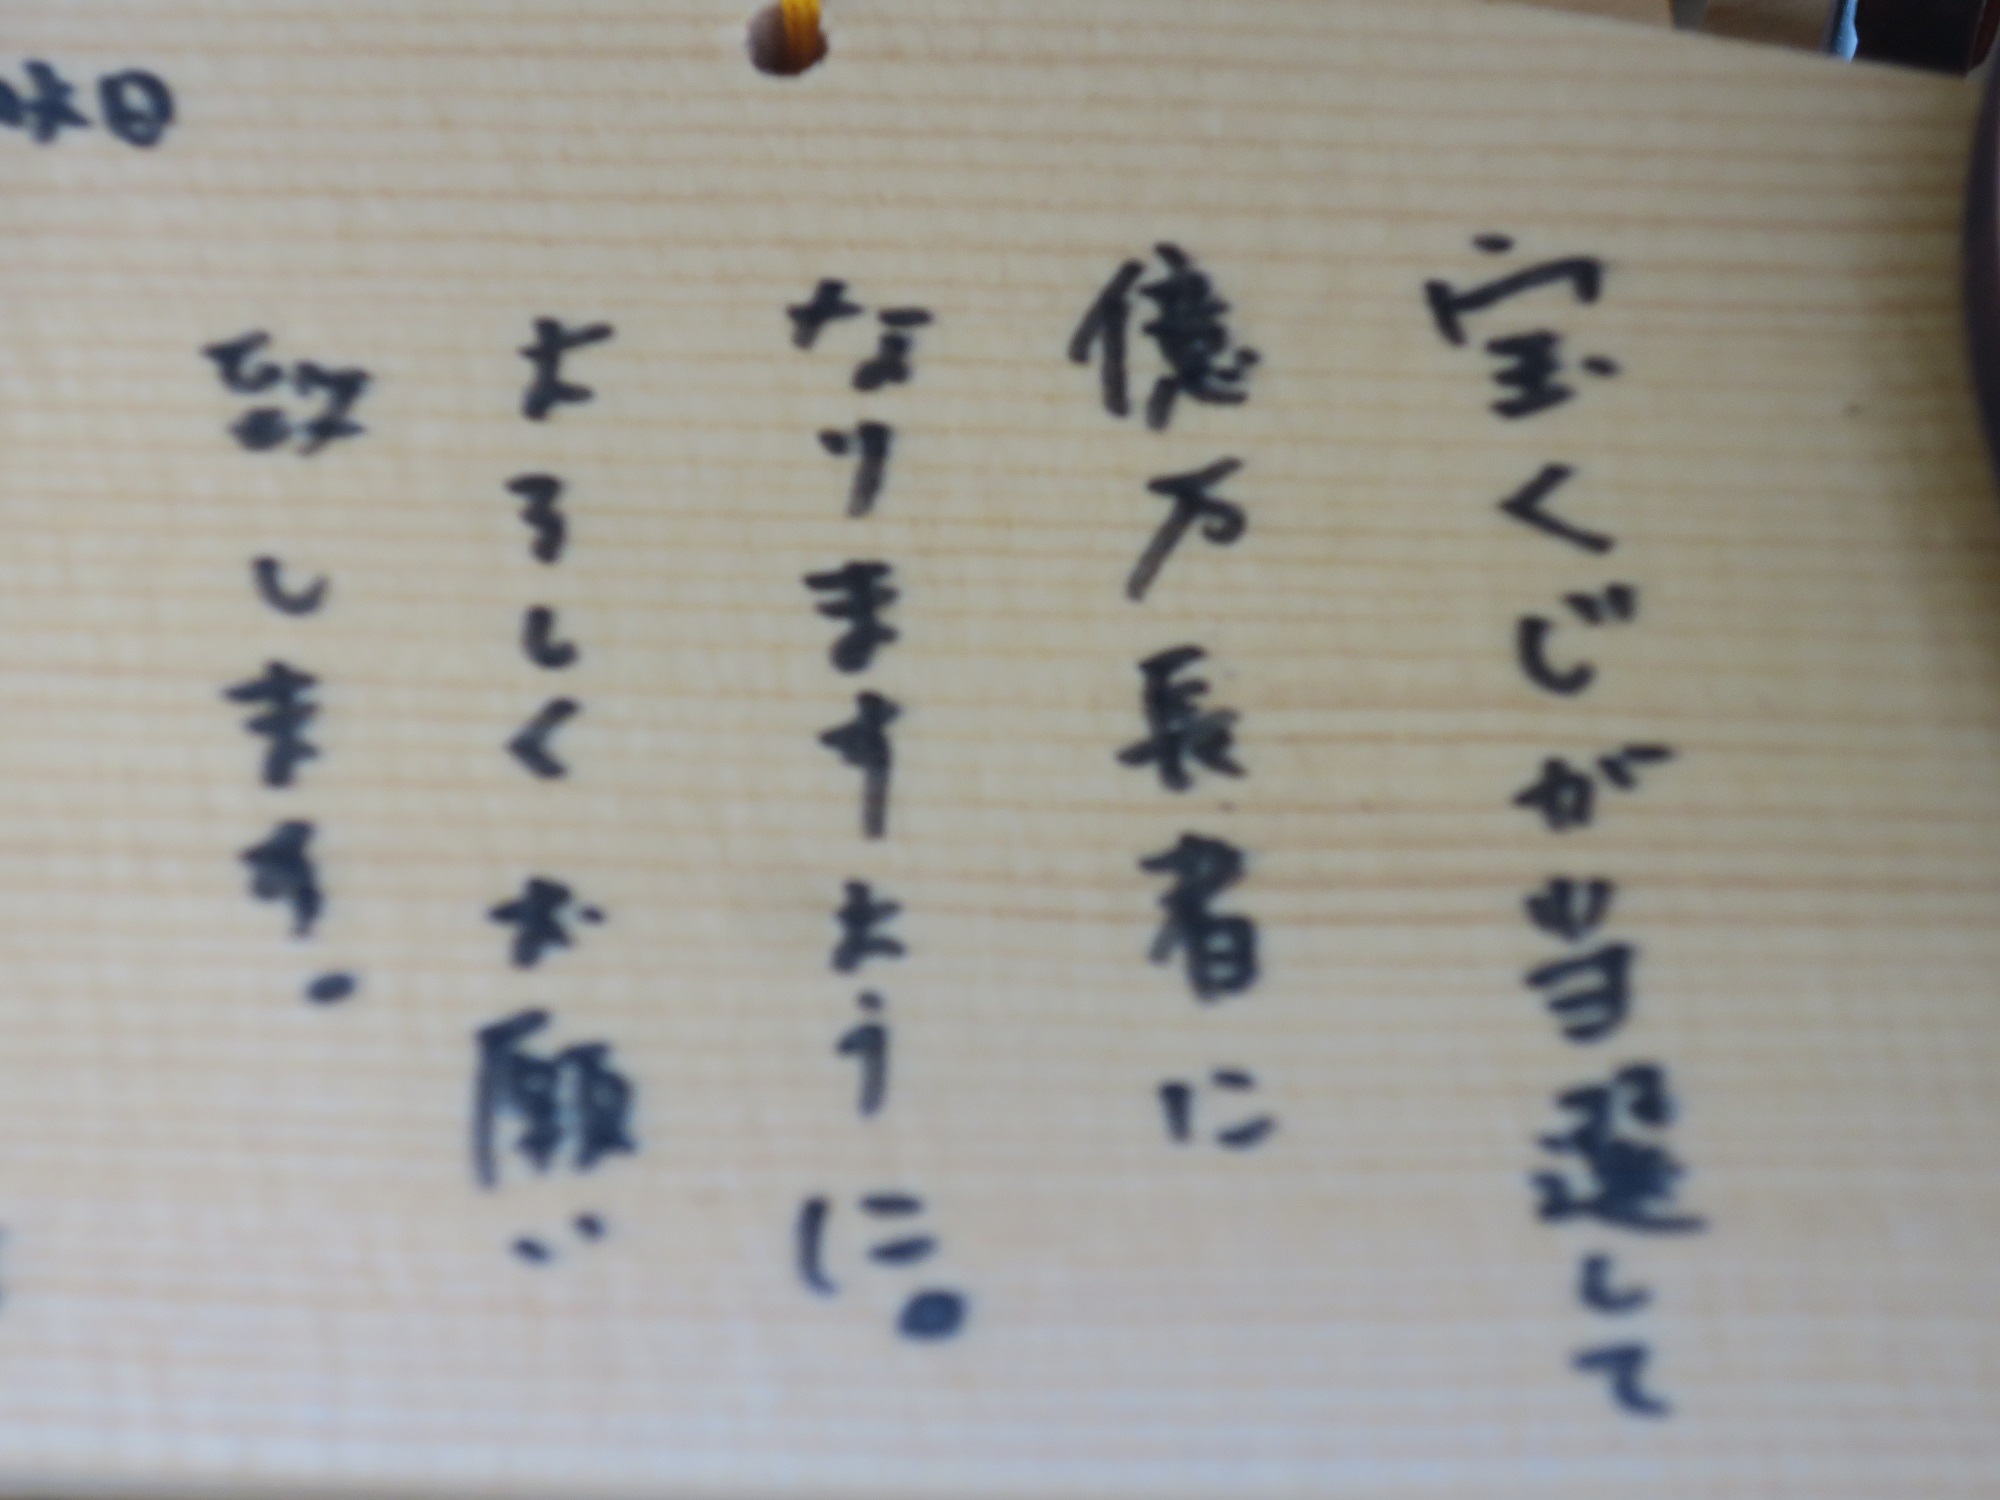 宝くじが当選して
億万長者に
なりますように。
よろしくお願い
致します。